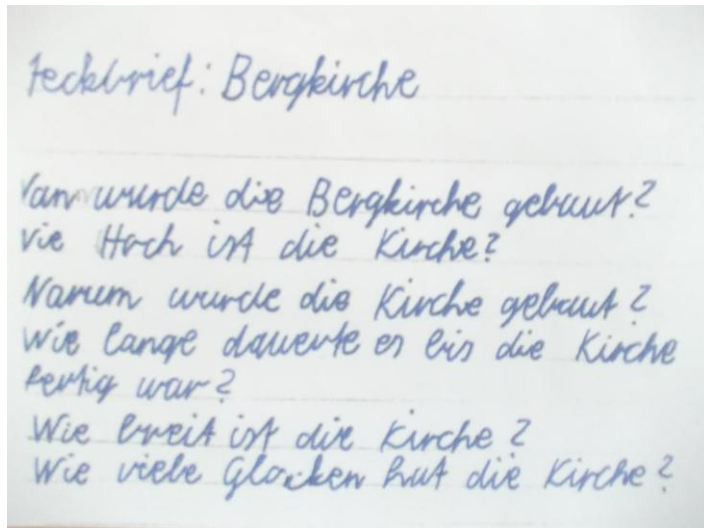 teckbrief: Bergkirche
Wann wurde die Bergkirche gebaut?
Wie Hoch ist die Kirche?
Warum wurde die Kirche gebaut?
Wie lange dauerte es bis die Kirche
fertig war?
Wie breit ist die Kirche?
Wie viele Glocken hat die Kirche?